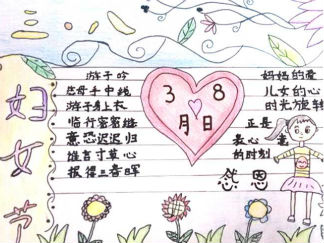 三八
妇女节
游子吟
慈母手中线
游子身上衣
临行密密缝
意恐迟迟归
谁言寸草心
报得三春晖
3 8
月 日
妈妈的爱
儿女的心
时光旋转
正是
表心意
的时刻
感恩